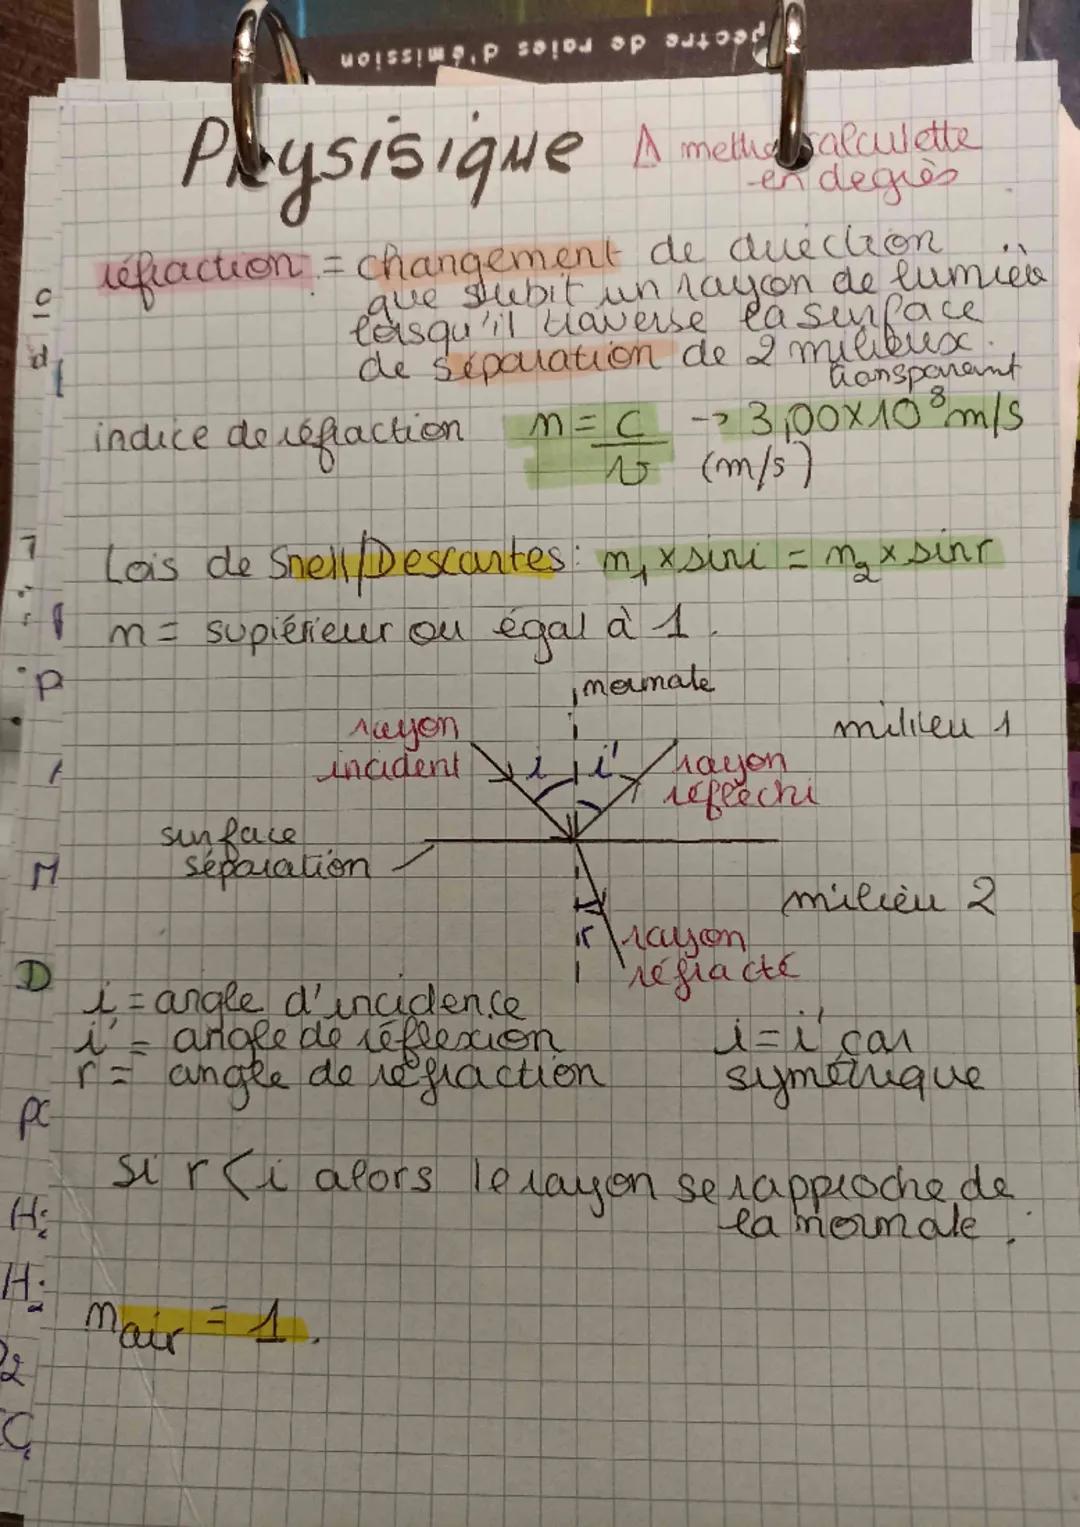 pectre de raies d'émission
Physisique ⚠ mettre calculette
en degrès
réfraction = changement de direction
que subit un rayon de lumière
lorsqu'il traverse la surface
de séparation de 2 milieux.
transparent
indice de réfraction n = c/v → 3,00×10⁸ m/s
(m/s)
Lois de Snell/Descartes: n₁ × sin i = n₂ × sin r
n = supiérieur ou égal à 1.
normale
rayon
incident
i i'
rayon
réfléchi
milieu 1
surface
séparation
milieu 2
r
rayon
réfracté
i = angle d'incidence
i' = angle de réflexion
r = angle de réfraction
i = i' car
symétrique
si r < i alors le rayon se rapproche de
la normale.
n air = 1.